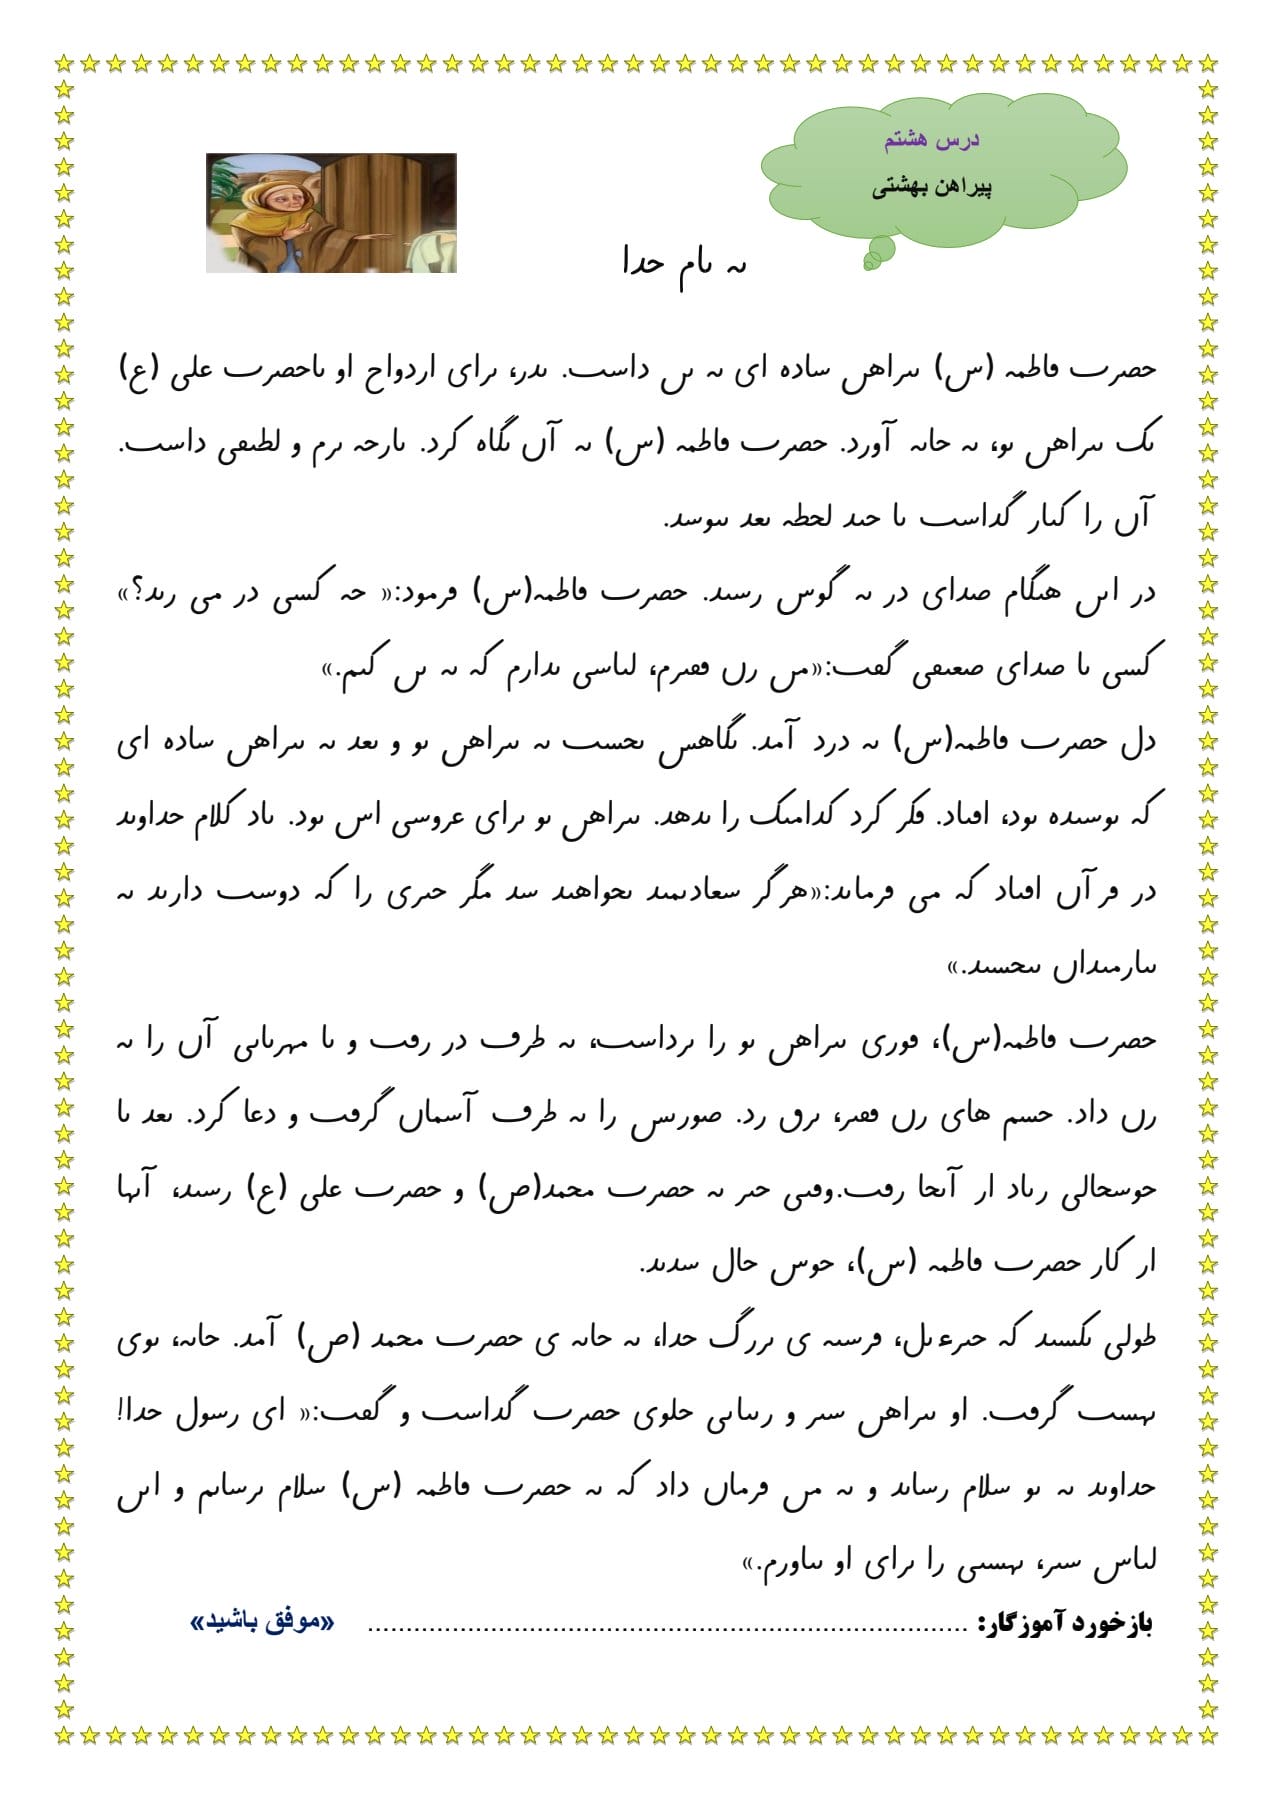 درس هشتم
پیراهن بهشتی
ٮه ٮام حدا
حصرٮ ڡاطمه (س) ٮٮراهں ساده ای ٮه ٮں داسٮ. ٮدر، ٮرای اردواح او ٮاحصرٮ علی (ع)
ٮک ٮٮراهں ٮو، ٮه حاٮه آورد. حصرٮ ڡاطمه (س) ٮه آں ٮگاه کرد. ٮارحه ٮرم و لطٮڡی داسٮ.
آں را کٮار گداسٮ ٮا حٮد لحطه ٮعد ٮٮوسد.
در اٮں هٮگام صدای در ٮه گوس رسٮد. حصرٮ ڡاطمه(س) ڡرمود:« حه کسی در می رٮد؟»
کسی ٮا صدای صعٮڡی گڡٮ:«مں رں ڡڡٮرم، لٮاسی ٮدارم که ٮه ٮں کٮم.»
دل حصرٮ ڡاطمه(س) ٮه درد آمد. ٮگاهس ٮحسٮ ٮه ٮٮراهں ٮو و ٮعد ٮه ٮٮراهں ساده ای
که ٮوسٮده ٮود، اڡٮاد. ڡکر کرد کدامٮک را ٮدهد. ٮٮراهں ٮو ٮرای عروسی اس ٮود. ٮاد کلام حداوٮد
در ڡر آں اڡٮاد که می ڡرماٮد:«هرگر سعادٮمٮد ٮحواهٮد سد مگر حٮری را که دوسٮ دارٮد ٮه
ٮٮارمٮداں ٮٮحسٮد.»
حصرٮ ڡاطمه(س)، ڡوری ٮٮراهں ٮو را ٮرداسٮ، ٮه طرڡ در رڡٮ و ٮا مهرٮاٮی آں را ٮه
رں داد. حسم های رں ڡڡٮر، ٮرڡ رد. صورٮس را ٮه طرڡ آسماں گرڡٮ و دعا کرد. ٮعد ٮا
حوسحالی رٮاد ار آٮحا رڡٮ.وڡٮی حٮر ٮه حصرٮ محمد(ص) و حصرٮ علی (ع) رسٮد، آٮها
ار کار حصرٮ ڡاطمه (س)، حوس حال سدٮد.
طولی ٮکسٮد که حٮرءٮل، ڡرسٮه ی ٮررگ حدا، ٮه حاٮه ی حصرٮ محمد (ص) آمد. حاٮه، ٮوی
ٮهسٮ گرڡٮ. او ٮٮراهں سٮر و رٮٮاٮی حلوی حصرٮ گداسٮ و گڡٮ:« ای رسول حدا!
حداوٮد ٮه ٮو سلام رساٮد و ٮه مں ڡرماں داد که ٮه حصرٮ ڡاطمه (س) سلام ٮرساٮم و اٮں
لٮاس سٮر، ٮهسٮی را ٮرای او ٮٮاورم.»
بازخورد آموزگار: ............................................................................ «موفق باشید»